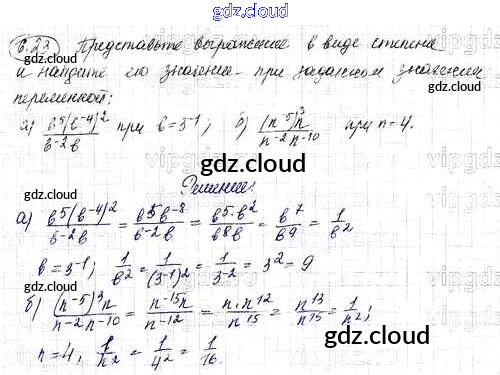 gdz.cloud
6.23 Представьте выражение в виде степени
и найдите его значение при заданном значении
переменной:
а) b⁵(b⁻⁴)²/b⁻²b при b=3⁻¹; б) (n⁻⁵)³n/n⁻²n⁻¹⁰ при n=4.
gdz.cloud
gdz.cloud
gdz.cloud
Решение:
а) b⁵(b⁻⁴)²/b⁻²b = b⁵b⁻⁸/b⁻²b = b⁵·b²/b⁸b = b⁷/b⁹ = 1/b²
gdz.cloud
b=3⁻¹; 1/b² = 1/(3⁻¹)² = 1/3⁻² = 3² = 9
б) (n⁻⁵)³n/n⁻²n⁻¹⁰ = n⁻¹⁵n/n⁻¹² = n·n¹²/n¹⁵ = n¹³/n¹⁵ = 1/n²;
gdz.cloud
gdz.cloud
n=4, 1/n² = 1/4² = 1/16.
gdz.cloud